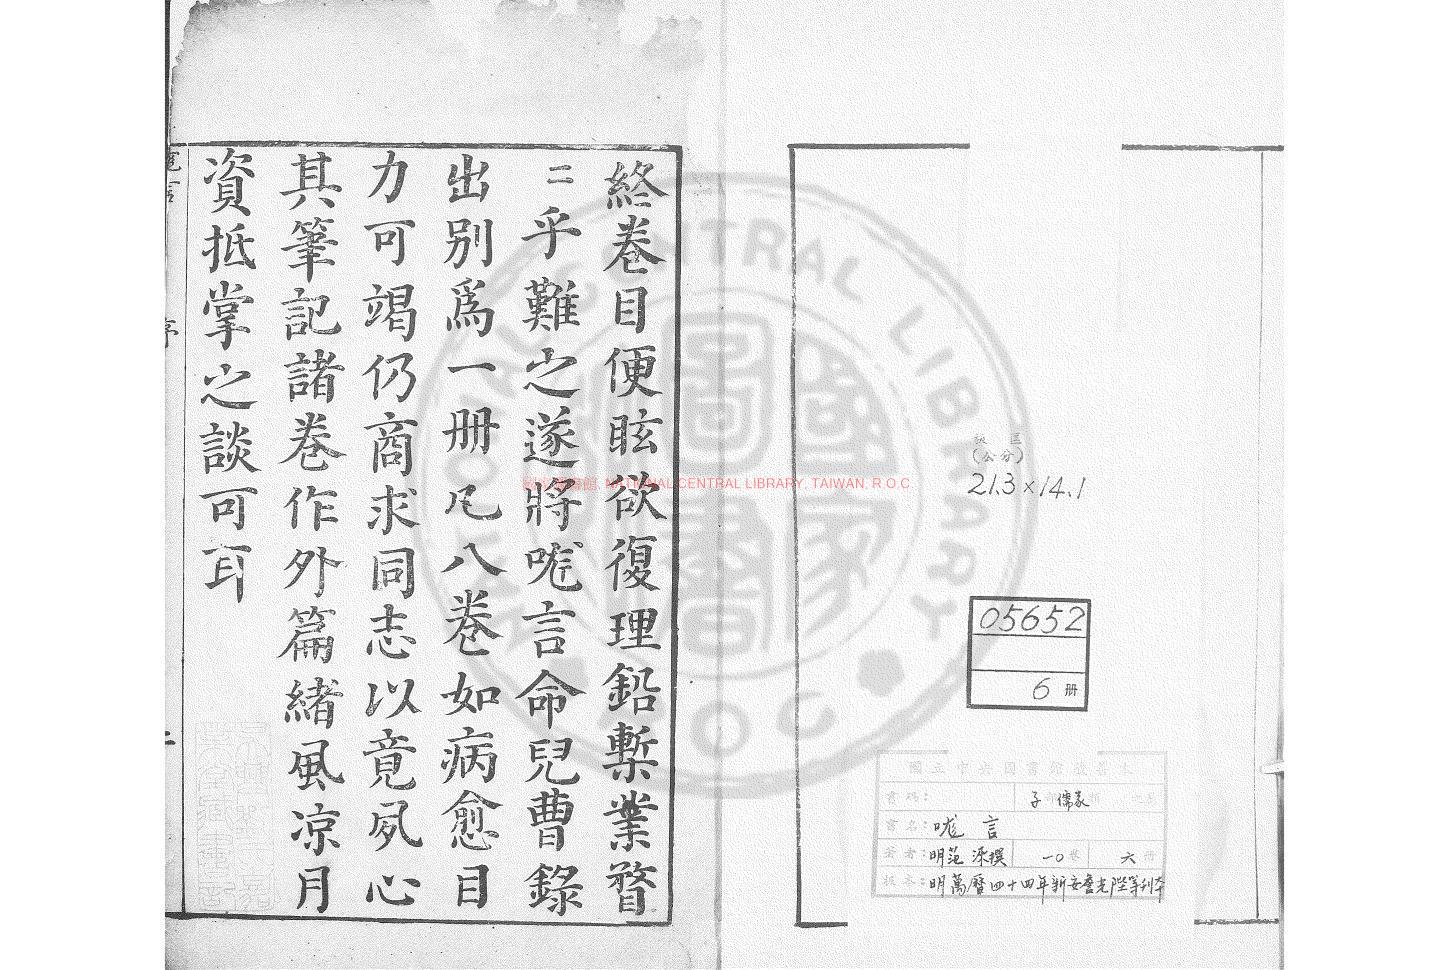 版匡
(公分)
21.3×14.1
05652
6 册
國立中央圖書館
書碼:
子 儒家
書名: 㖟言
著者: 明范 撰 一〇卷 六冊
版本: 明萬曆四十四年新安詹光陛等刊本
終卷目便眩欲復理鉛槧業瞀
二乎難之遂將㖟言命兒曹錄
出别爲一册凡八卷如病愈目
力可竭仍商求同志以竟夙心
其筆記諸卷作外篇緒風凉月
資抵掌之談可耳
序
NATIONAL CENTRAL LIBRARY
R.O.C.
國家圖書館, NATIONAL CENTRAL LIBRARY, TAIWAN, R.O.C.